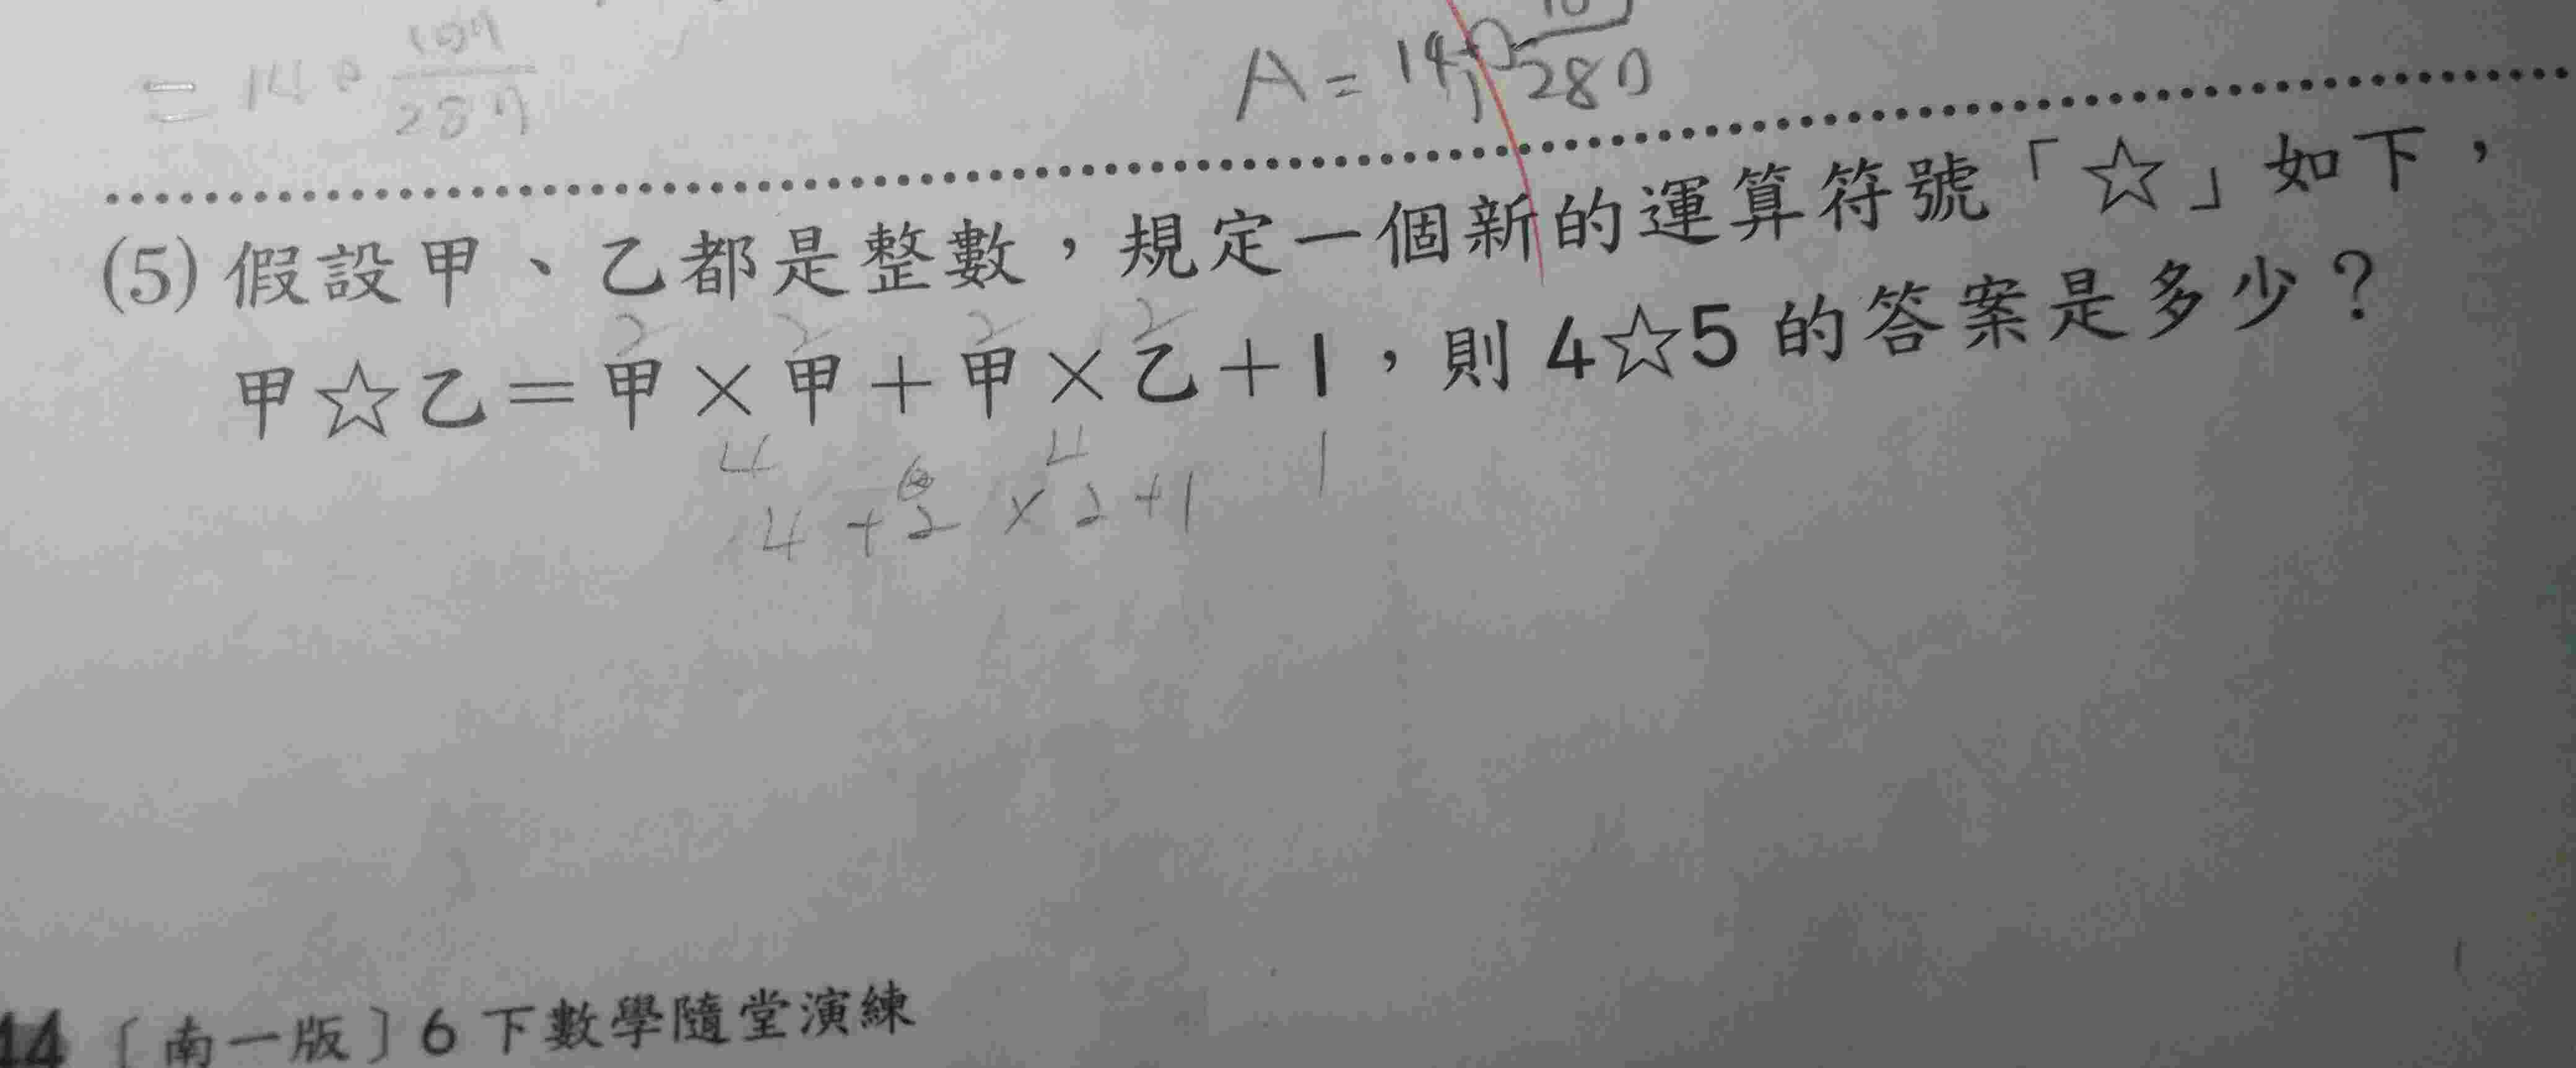 = 14
A = 14
280
(5) 假設甲、乙都是整數，規定一個新的運算符號「☆」如下，
2 2 2 2
甲☆乙＝甲×甲＋甲×乙＋1，則 4☆5 的答案是多少？
4 4 1
4 + 2 × 2 + 1
14 〔南一版〕6 下數學隨堂演練